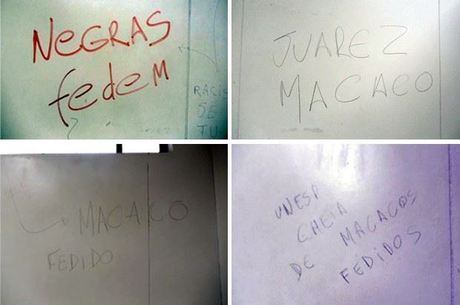 NeGRAS
fedem
RACIS
SE
TU
JUAREZ
MACACO
MACACO
FEDIDO
UNESP
CHEIA
DE MACACOS
FEDIDOS